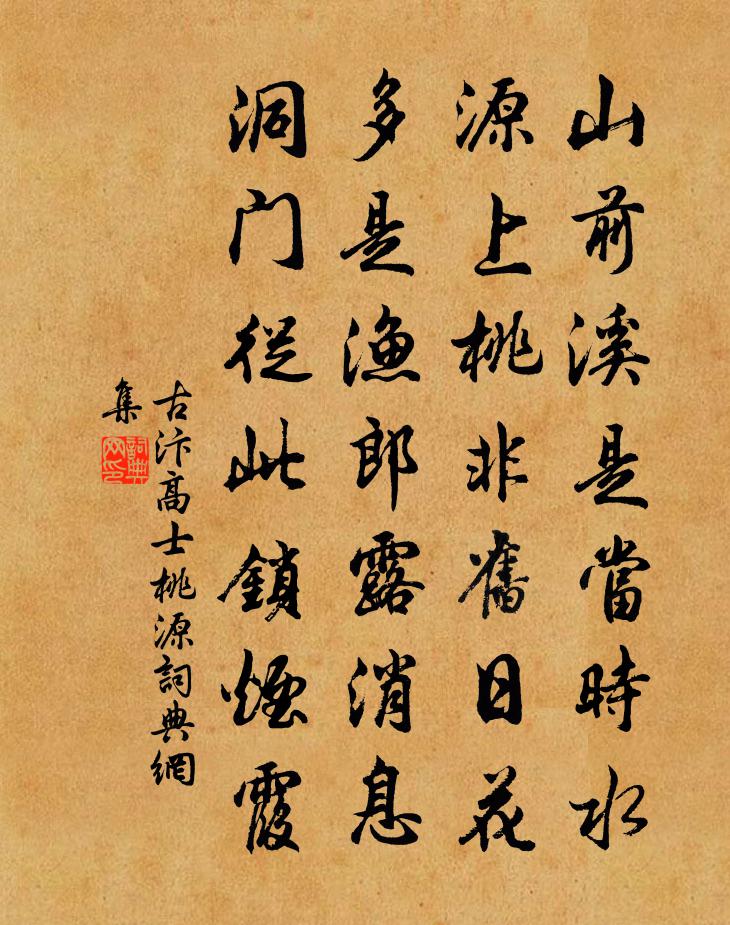 山前溪是當時水
源上桃非舊日花
多是漁郎露消息
洞门從此鎖煙霞
古汴高士桃源詞典網
集
詞典网印